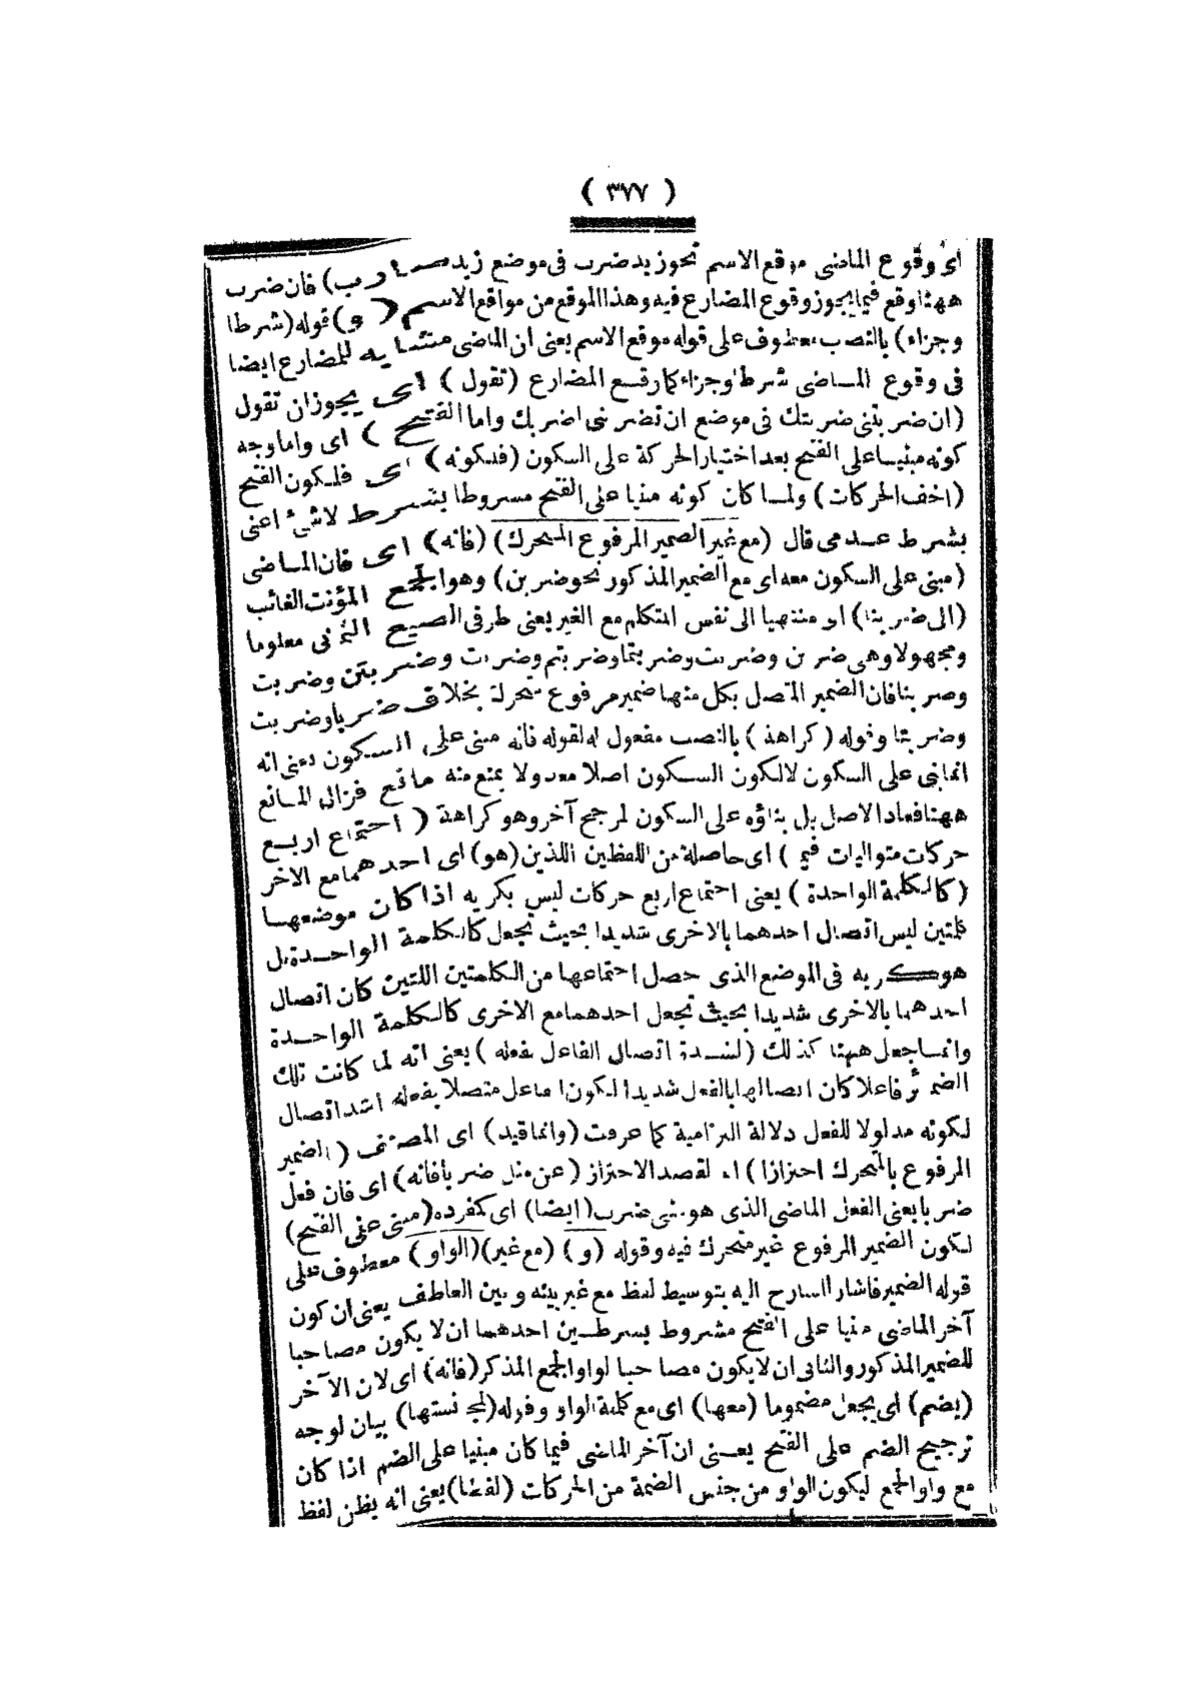 ( ٣٧٧ )
اى وقوع الماضى موقع الاسم نحو زيد ضرب فى موضع زيد ضارب) فان ضرب
ههنا وقع فيما يجوز وقوع المضارع فيه وهذا الموقع من مواقع الاسم (و) قوله (شرطا
وجزاء) بالنصب معطوف على قوله موقع الاسم يعنى ان الماضى مشابه للمضارع ايضا
فى وقوع الماضى شرطا وجزاء كما وقع المضارع (تقول) اى يجوز ان تقول
(ان ضربتنى ضربتك فى موضع ان تضربنى اضربك واما الفتح) اى واما وجه
كونه مبنيا على الفتح بعد اختيار الحركة على السكون (فلكونه) اى فلكون الفتح
(اخف الحركات) ولما كان كونه مبنيا على الفتح مشروطا بشرط لا شئ اعنى
بشرط عدمى قال (مع غير الضمير المرفوع المتحرك) (فانه) اى فان الماضى
(مبنى على السكون معه اى مع الضمير المذكور نحو ضربن) وهو الجمع المؤنث الغائب
(الى ضربنا) او منتهيا الى نفس المتكلم مع الغير يعنى طرقى الصيح الثمانى معلوما
ومجهولا وهى ضربن وضربت وضربتما وضربتم وضربت وضربتن وضربت
وضربنا فان الضمير المتصل بكل منها ضمير مرفوع متحرك بخلاف ضربا وضربت
وضربتا وقوله (كراهة) بالنصب مفعول له لقوله فانه مبنى على السكون يعنى انه
انما بنى على السكون لا لكون السكون اصلا معدولا يمنع منه مانع فزال المانع
ههنا فعاد الاصل بل بناؤه على السكون لمرجح آخر وهو كراهة (اجتماع اربع
حركات متواليات فيما) اى حاصلة من اللفظين اللذين (هو) اى احدهما مع الاخر
(كالكلمة الواحدة) يعنى اجتماع اربع حركات ليس بكريه اذا كان موضعها
كلمتين ليس اتصال احدهما بالاخرى شديدا بحيث تجعل كالكلمة الواحدة بل
هو كريه فى الموضع الذى حصل اجتماعها من الكلمتين اللتين كان اتصال
احدهما بالاخرى شديدا بحيث تجعل احدهما مع الاخرى كالكلمة الواحدة
وانما جعل ههنا كذلك (لشدة اتصال الفاعل بفعله) يعنى انه لما كانت تلك
الضمائر فاعلا كان اتصالها بالفعل شديدا لكون الفاعل متصلا بفعله اشد اتصال
لكونه مدلولا للفعل دلالة التزامية كما عرفت (وانما قيد) اى المصنف (الضمير
المرفوع بالمتحرك احترازا) اى لقصد الاحتراز (عن مثل ضربا فانه) اى فان فعل
ضربا يعنى الفعل الماضى الذى هو مثنى ضرب (ايضا) اى كمفرده (مبنى على الفتح)
لكون الضمير المرفوع غير متحرك فيه وقوله (و) (مع غير) (الواو) معطوف على
قوله الضمير فاشار الشارح اليه بتوسيط لفظ مع غير بينه وبين العاطف يعنى ان كون
آخر الماضى مبنيا على الفتح مشروط بشرطين احدهما ان لا يكون مصاحبا
للضمير المذكور والثانى ان لا يكون مصاحبا لواو الجمع المذكر (فانه) اى لان الآخر
(يضم) اى يجعل مضموما (معها) اى مع كلمة الواو وقوله (لمجانستها) بيان لوجه
ترجيح الضم على الفتح يعنى ان آخر الماضى فيما كان مبنيا على الضم اذا كان
مع واو الجمع ليكون الواو من جنس الضمة من الحركات (لفظا) يعنى انه يظن لفظ